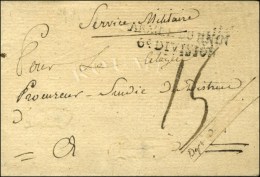 Service Militaire
ARMÉE DU RHIN
6e DIVISION
Pour Le Citoyen
15
Procureur Sindic du District
d
a